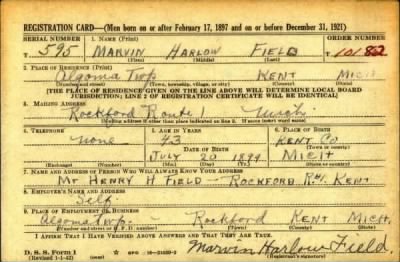 REGISTRATION CARD—(Men born on or after February 17, 1897 and on or before December 31, 1921)
SERIAL NUMBER 1. NAME (Print) ORDER NUMBER
T 595 MARVIN HARLOW FIELD 10182
(First) (Middle) (Last)
2. PLACE OF RESIDENCE (Print)
Algoma Twp. KENT MICH
(Number and street) (Town, township, village, or city) (County) (State)
[THE PLACE OF RESIDENCE GIVEN ON THE LINE ABOVE WILL DETERMINE LOCAL BOARD
JURISDICTION; LINE 2 OF REGISTRATION CERTIFICATE WILL BE IDENTICAL]
3. MAILING ADDRESS
Rockford Route 1 Mich.
[Mailing address if other than place indicated on line 2. If same insert word same]
4. TELEPHONE 5. AGE IN YEARS 6. PLACE OF BIRTH
none 43 KENT Co
DATE OF BIRTH (Town or county)
JULY 20 1899 MICH
(Exchange) (Number) (Mo.) (Day) (Yr.) (State or country)
7. NAME AND ADDRESS OF PERSON WHO WILL ALWAYS KNOW YOUR ADDRESS
Mr HENRY H FIELD — ROCKFORD R#1. KENT
8. EMPLOYER'S NAME AND ADDRESS
Self
9. PLACE OF EMPLOYMENT OR BUSINESS
Algoma Twp. — Rockford KENT MICH.
(Number and street or R. F. D. number) (Town) (County) (State)
I AFFIRM THAT I HAVE VERIFIED ABOVE ANSWERS AND THAT THEY ARE TRUE.
D. S. S. Form 1
(Revised 1-1-42) (over)
Marvin Harlow Field.
(Registrant's signature)